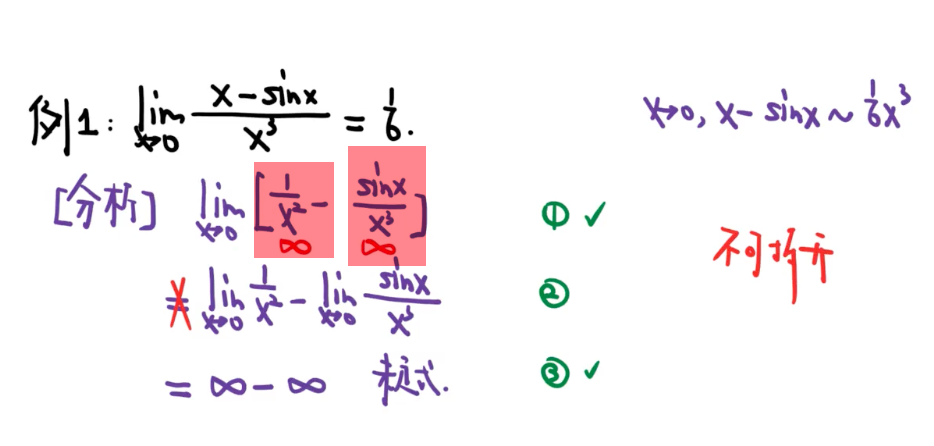 例1: lim x→0 (x-sinx)/x³ = 1/6.
x→0, x-sinx ~ 1/6 x³
[分析] lim x→0 [1/x² - sinx/x³] ① ✓
∞ ∞
不可拆开
= lim x→0 1/x² - lim x→0 sinx/x³ ②
= ∞-∞ 未定式. ③ ✓